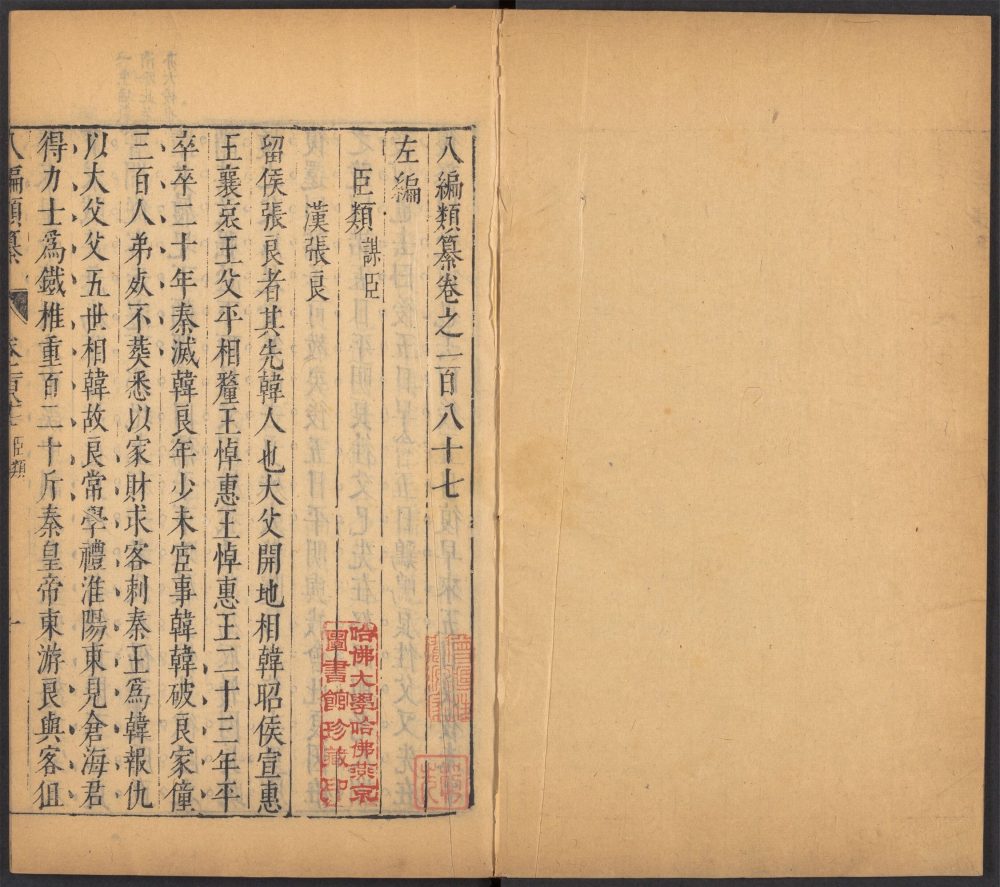 八編類纂卷之一百八十七
左編
臣類謀臣
漢張良
留侯張良者其先韓人也大父開地相韓昭侯宣惠
王襄哀王父平相釐王悼惠王悼惠王二十三年平
卒卒二十年秦滅韓良年少未宦事韓韓破良家僮
三百人弟死不葬悉以家財求客刺秦王為韓報仇
以大父父五世相韓故良常學禮淮陽東見倉海君
得力士為鐵椎重百二十斤秦皇帝東游良與客狙
八編類纂
臣類
一
哈佛大學哈佛燕京
圖書館珍藏印